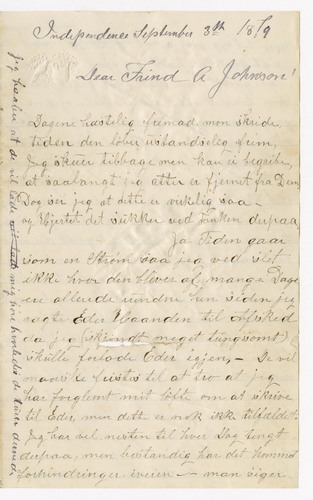 Independence September 3th 1879
Dear Frind A Johnson!
Dagene hasteleg fremad, mon skride,
tiden den løber ustandseleg frem,
Jeg skuer tilbage men kan ei begribe,
at saalangt jeg atter er fjernet fra Dem,
Dog ser jeg at dette er virkelig saa
og Hjertet det sukker ved Tanken derpaa,
Ja Tiden gaar
som en Strøm saa jeg ved slet
ikke hvor den bliver af, mange Dage
ere allerede rundne hen siden jeg
ragte Eder Haanden til Afsked
da jeg (iskjøndt meget tungsomt)
skulle forlade Eder igjen, — De vil
maaske fristes til at tro at jeg
har forglemt mit løfte om at skrive
til Eder, men dette er nok ikke tilfældet.
Jeg har vel nesten til hver Dag tengt
derpaa, men bestandig har det kommet
forhindringer iveien — man siger
Jeg haaber at De vil